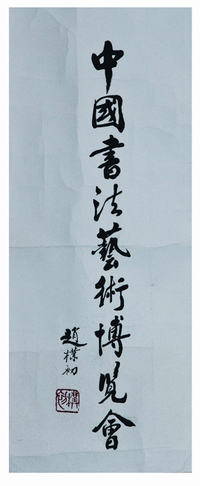 中國書法藝術博覽會
趙樸初